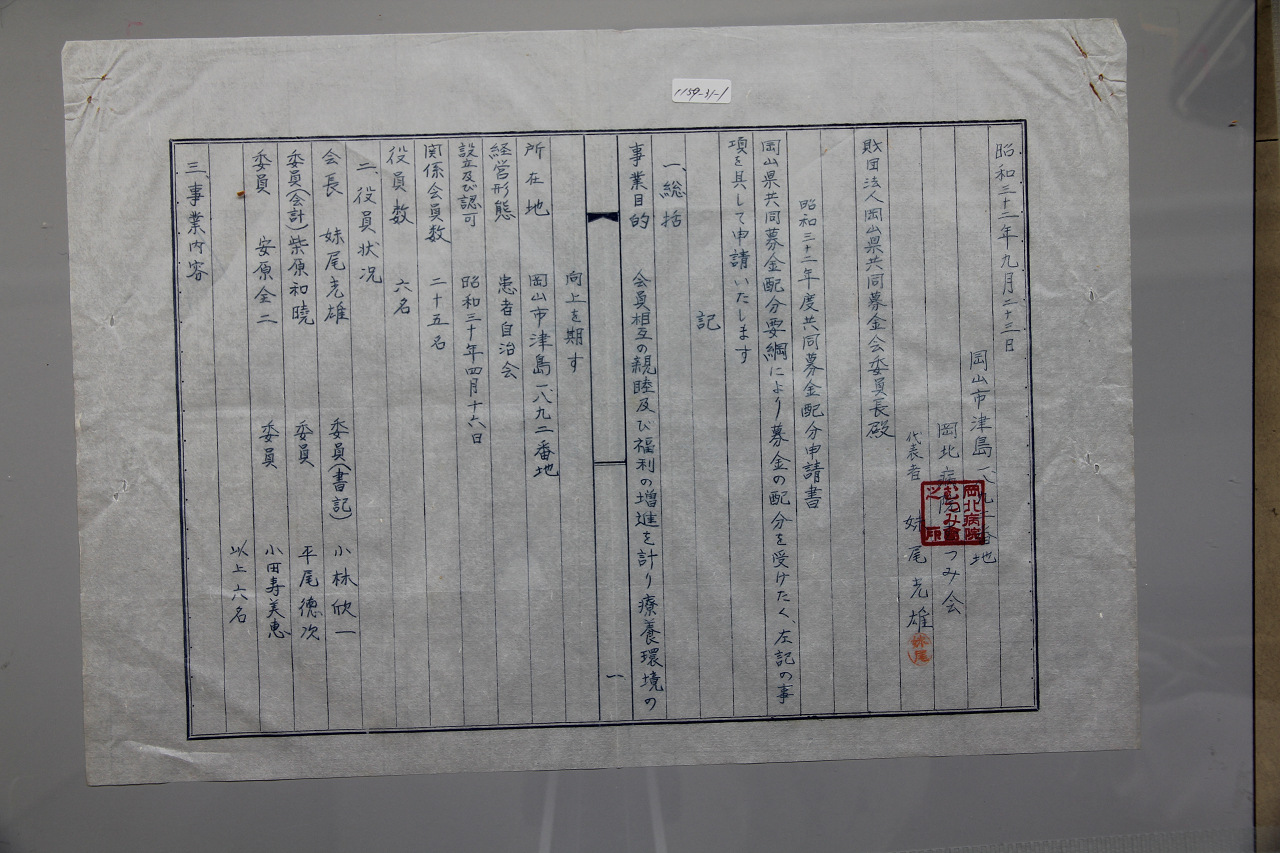 1159-31-1
昭和三十二年九月二十三日
岡山市津島一八九二番地
岡北病院むつみ会
代表者 妹尾克雄
妹尾
岡北病院
むつみ會
之印
財団法人岡山県共同募金会委員長殿
昭和三十二年度共同募金配分申請書
岡山県共同募金配分要綱により募金の配分を受けたく、左記の事
項を具して申請いたします
記
一、総括
事業目的 会員相互の親睦及び福利の増進を計り療養環境の
一
向上を期す
所在地 岡山市津島一八九二番地
経営形態 患者自治会
設立及び認可 昭和三十年四月十六日
関係会員数 二十五名
役員数 六名
二、役員状況
会長 妹尾克雄 委員(書記) 小林欣一
委員(会計) 柴原和曉 委員 平尾徳次
委員 安原全二 委員 小田寿美恵
以上六名
三、事業内容